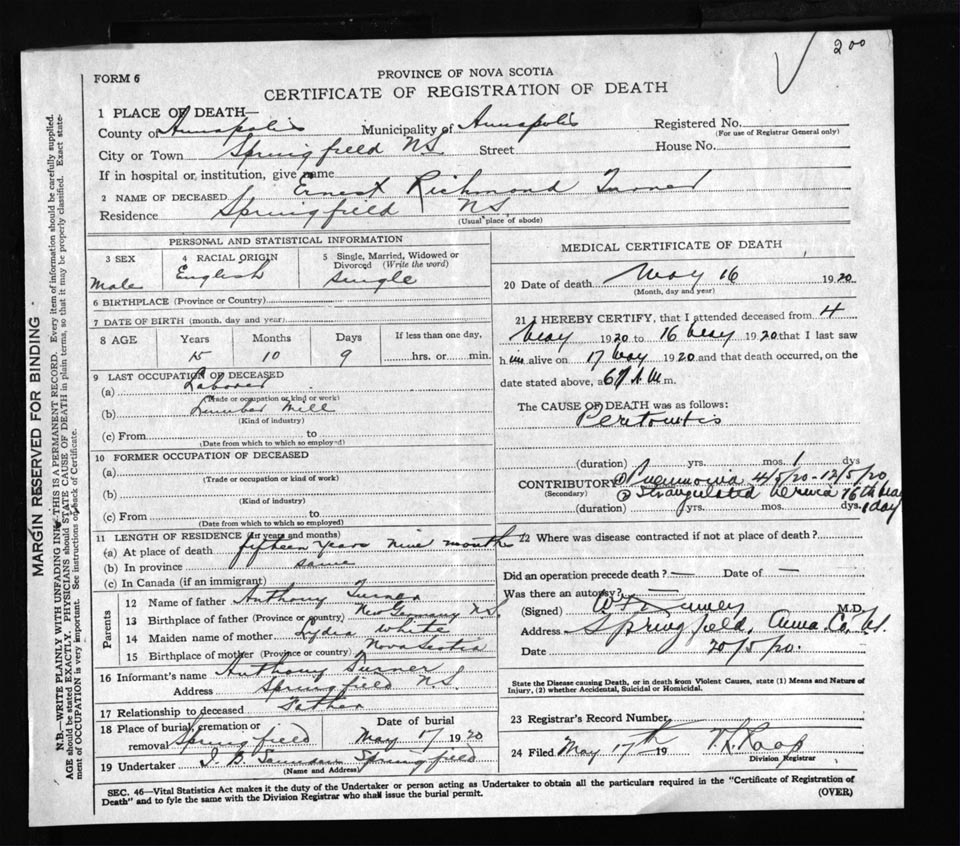 2 00
FORM 6
PROVINCE OF NOVA SCOTIA
CERTIFICATE OF REGISTRATION OF DEATH
MARGIN RESERVED FOR BINDING
N.B.—WRITE PLAINLY WITH UNFADING INK—THIS IS A PERMANENT RECORD. Every item of information should be carefully supplied.
AGE should be stated EXACTLY. PHYSICIANS should STATE CAUSE OF DEATH in plain terms, so that it may be properly classified. Exact state-
ment of OCCUPATION is very important. See instructions on back of Certificate.
1 PLACE OF DEATH—
County of Annapolis Municipality of Annapolis Registered No.
(For use of Registrar General only)
City or Town Springfield NS Street House No.
If in hospital or institution, give name
2 NAME OF DECEASED Ernest Richmond Turner
Residence Springfield NS.
(Usual place of abode)
PERSONAL AND STATISTICAL INFORMATION
3 SEX Male
4 RACIAL ORIGIN English
5 Single, Married, Widowed or Divorced (Write the word) single
6 BIRTHPLACE (Province or Country)
7 DATE OF BIRTH (month, day and year)
8 AGE Years Months Days If less than one day,
15 10 9 hrs. or min.
9 LAST OCCUPATION OF DECEASED
(a) Laborer
(Trade or occupation or kind or work)
(b) Lumber Mill
(Kind of industry)
(c) From to
(Date from which to which so employed)
10 FORMER OCCUPATION OF DECEASED
(a)
(Trade or occupation or kind of work)
(b)
(Kind of industry)
(c) From to
(Date from which to which so employed)
11 LENGTH OF RESIDENCE (in years and months)
(a) At place of death fifteen years nine month
(b) In province same
(c) In Canada (if an immigrant)
Parents
12 Name of father Anthony Turner
13 Birthplace of father (Province or country) New Germany N.S.
14 Maiden name of mother Lydia White
15 Birthplace of mother (Province or country) Nova Scotia
16 Informant's name Anthony Turner
Address Springfield N.S.
17 Relationship to deceased Father
18 Place of burial, cremation or removal Springfield
Date of burial May 17 1920
19 Undertaker Springfield
(Name and Address)
MEDICAL CERTIFICATE OF DEATH
20 Date of death May 16 1920
(Month, day and year)
21 I HEREBY CERTIFY, that I attended deceased from 4
May 1920 to 16 May 1920 that I last saw
h im alive on 17 May 1920 and that death occurred, on the
date stated above, a m.
The CAUSE OF DEATH was as follows:
Peritonitis
(duration) yrs. mos. 1 dys
CONTRIBUTORY ① Pneumonia 4/5/20-12/5/20
(Secondary) ② Strangulated hernia 16th May
(duration) yrs. mos. dys. 1 day
12 Where was disease contracted if not at place of death?
Did an operation precede death? — Date of —
Was there an autopsy?
(Signed) M.D.
Address Springfield, Anna. Co.
Date 20/5/20.
State the Disease causing Death, or in death from Violent Causes, state (1) Means and Nature of
Injury, (2) whether Accidental, Suicidal or Homicidal.
23 Registrar's Record Number
24 Filed May 17th 19
Division Registrar
SEC. 46—Vital Statistics Act makes it the duty of the Undertaker or person acting as Undertaker to obtain all the particulars required in the "Certificate of Registration of
Death" and to fyle the same with the Division Registrar who shall issue the burial permit.
(OVER)